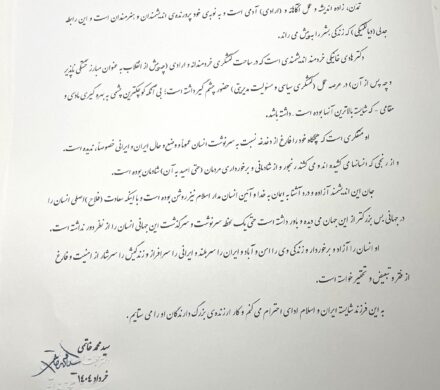 تمدن، زاده اندیشه و عمل آگاهانه و (ارادی) آدمی است و به نوبه‌ی خود پرورنده‌ی اندیشمندان و هنرمندان است و این رابطه
جدلی (دیالکتیکی) که زندگی بشر را به پیش می راند.
دکتر هادی خانیکی خردمند اندیشمندی است که در ساحت کنشگری خردمندانه و ارادی (چه پیش از انقلاب به عنوان مبارز خستگی ناپذیر
و چه پس از آن) در عرصه عمل (کنشگری سیاسی و مسئولیت مدیریتی) حضور چشم گیر داشته است؛ بی آنکه کوچکترین چشمی به بهره گیری مادی و
مقامی - که شایسته بالاترین آنها بوده است - داشته باشد.
او متفکری است که هیچگاه خود را فارغ از دغدغه نسبت به سرنوشت انسان عموماً و وضع و حال ایران و ایرانی خصوصاً، ندیده است.
و از رنجی که انسانها می کشیده اند و می کشند رنجور و از شادمانی و برخورداری مردمان (حتی امید به آن) شادمان بوده است.
جان این اندیشمند آزاده و درد آشنا به ایمان به خدا و آئین انسان مدار اسلام نیز روشن بوده است و با اینکه سعادت (فلاح) اصلی انسان را
در جهانی بس بزرگتر از این جهان می دیده و باور داشته است حتی یک لحظه سرنوشت و سرگذشت این جهانی انسان را از نظر دور نداشته است.
او انسان را آزاد و برخوردار و زندگی وی را امن و آباد و ایران را سربلند و ایرانی را سرافراز و زندگیش را سرشار از امنیت و فارغ
از فقر و تبعیض و تحقیر خواسته است.
به این فرزند شایسته ایران و اسلام ادای احترام می کنم و کار ارزنده‌ی بزرگ دارندگان او را می ستایم.
سید محمد خاتمی
خرداد ۱۴۰۴